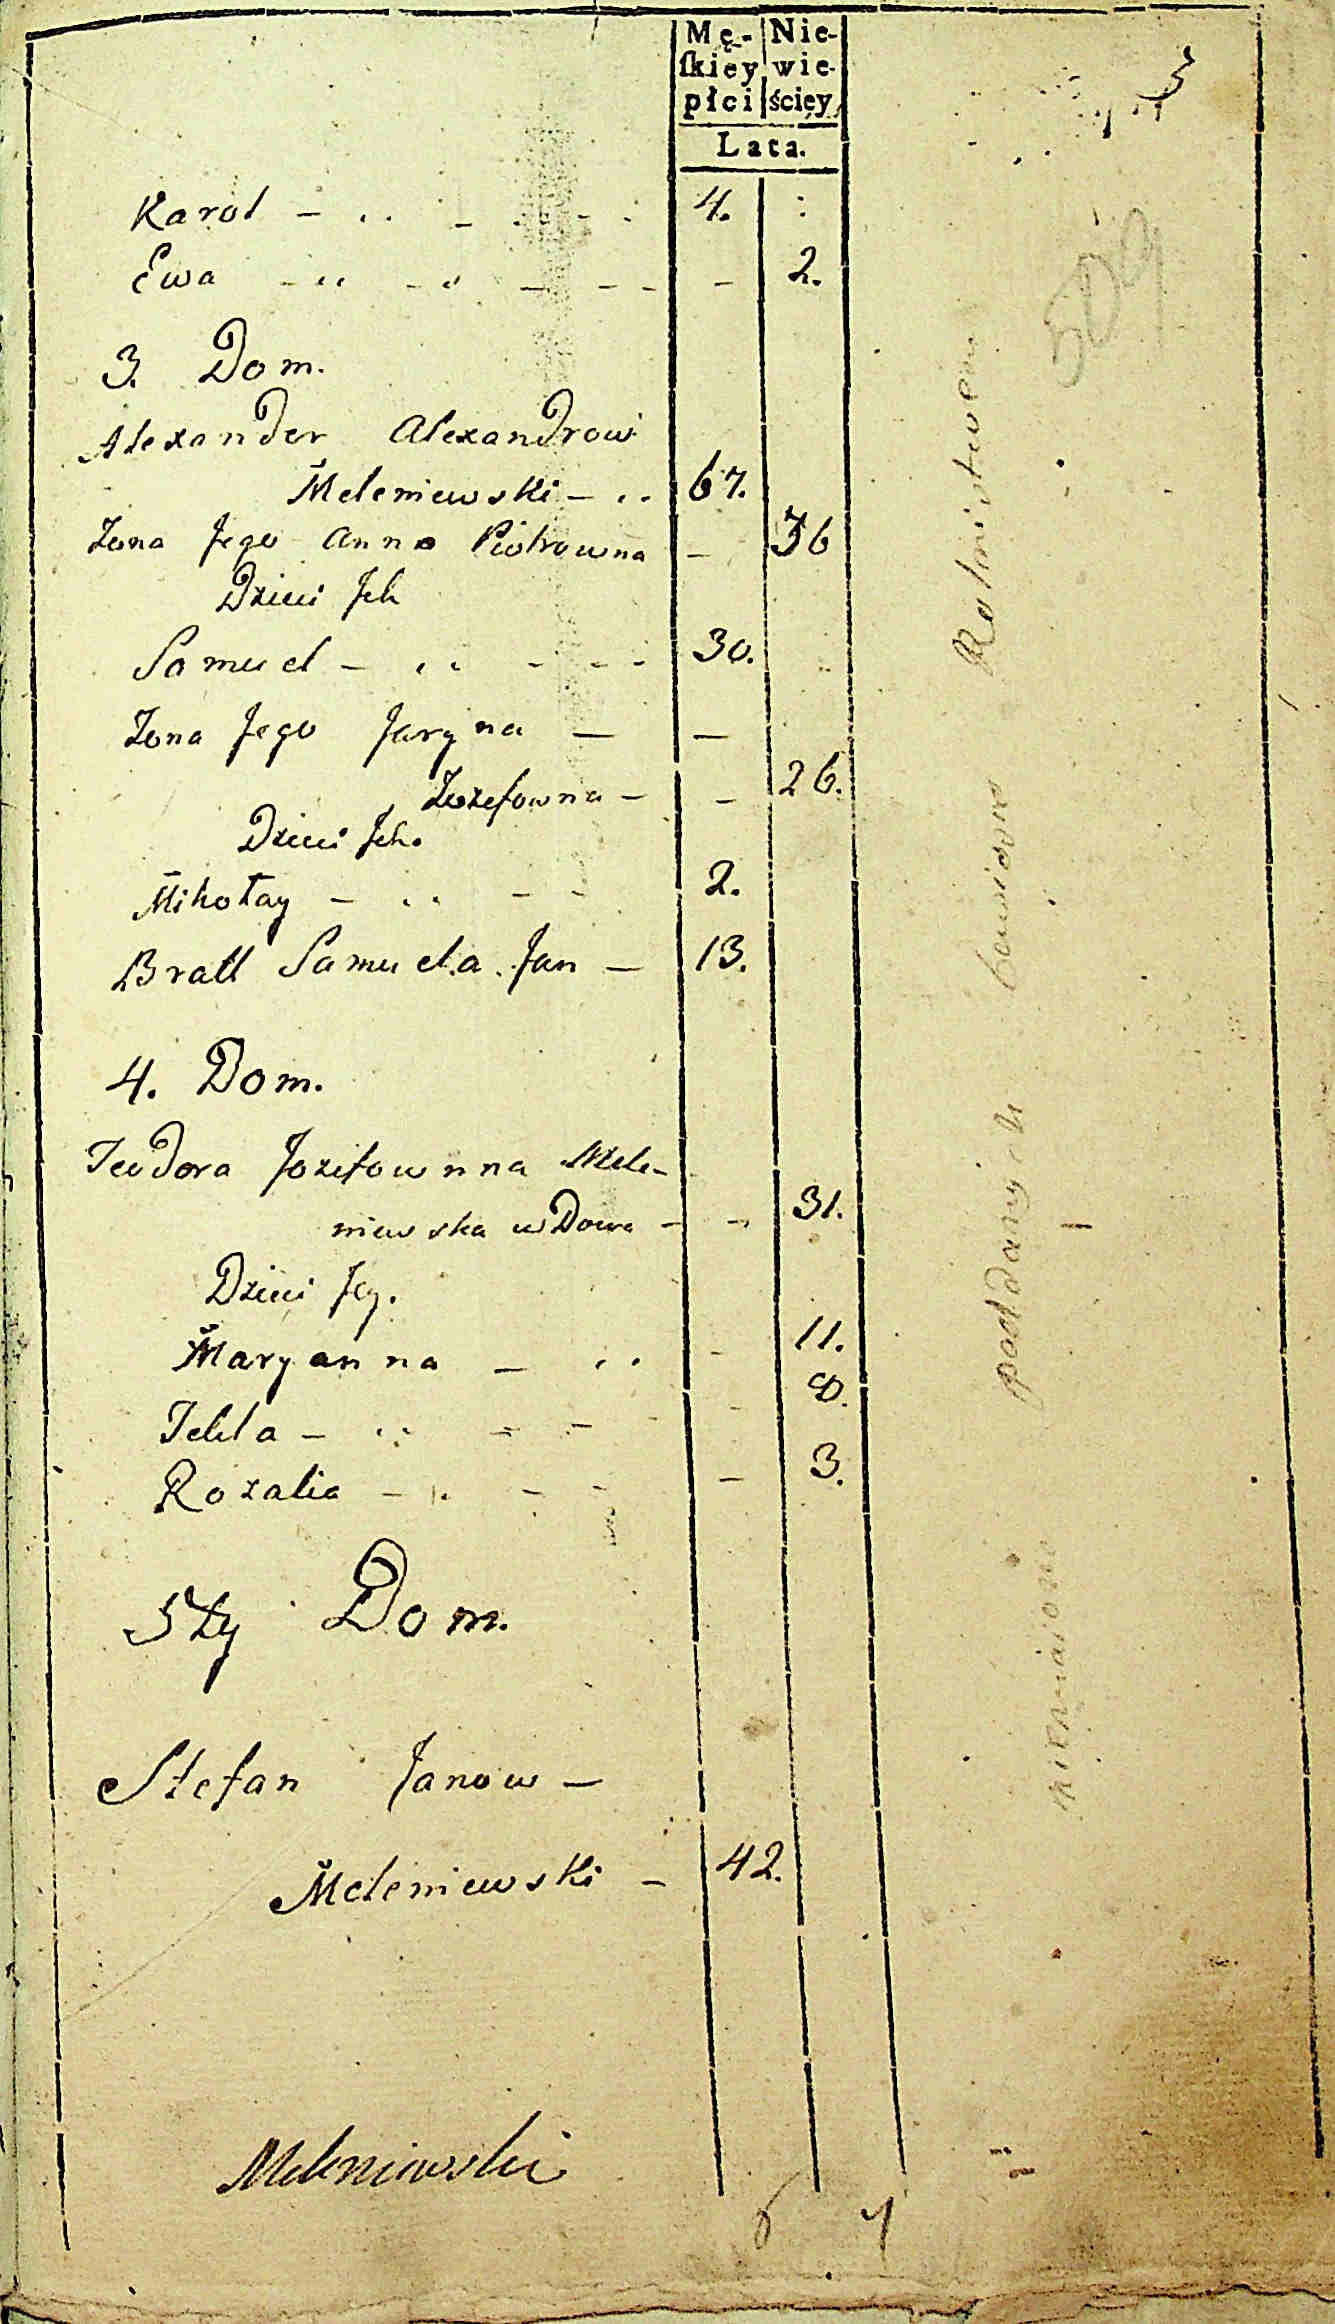 Mę- Nie-
ſkiey wie-
płci ścięy
Lata.
Karol - .. - . - . 4. :
Ewa - .. - .. - - - - 2.
3. Dom.
Alexander Alexandrow
Meleniewski - .. 67.
Zona Jego Anna Piotrowna - 36
Dzieci Jch
Samuel - .. - - - 30.
Zona Jego Jaryna - -
Jozefowna - - 26.
Dzieci Jch.
Mikołay - .. - - 2.
Bratt Samuela Jan - 13.
4. Dom.
Teodora Jozefownna Mele-
niewska wDowa - - 31.
Dzieci Jey.
Maryanna - .. - 11.
Tekla - .. - - - 8.
Rozalia - .. - - - 3.
5ty Dom.
Stefan Janow -
Meleniewski - 42.
Meleniewski
6 7
509
Rolnictwem
poddanych